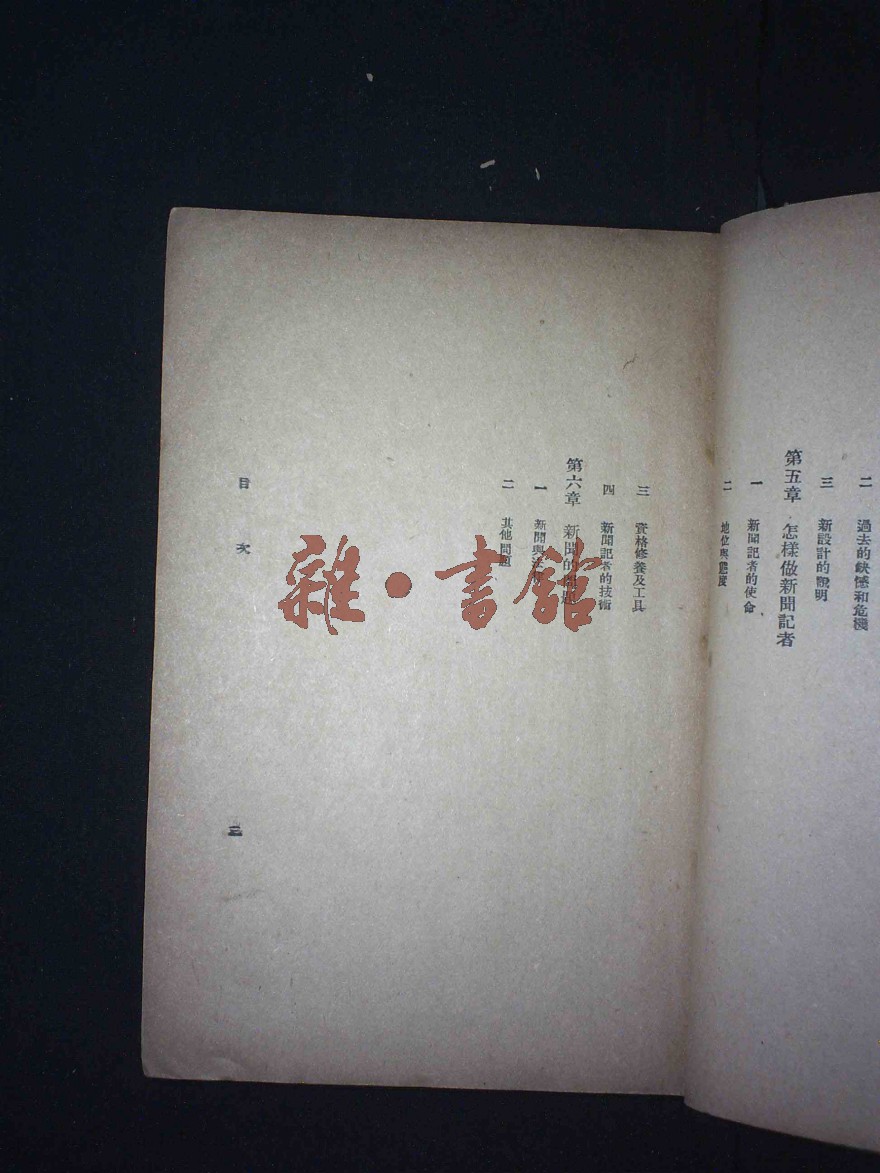 二　過去的缺憾和危機
三　新設計的說明
第五章　怎樣做新聞記者
一　新聞記者的使命
二　地位與態度
三　資格修養及工具
四　新聞記者的技術
第六章　新聞的問題
一　新聞與法
二　其他問題
目次
三
雜·書館